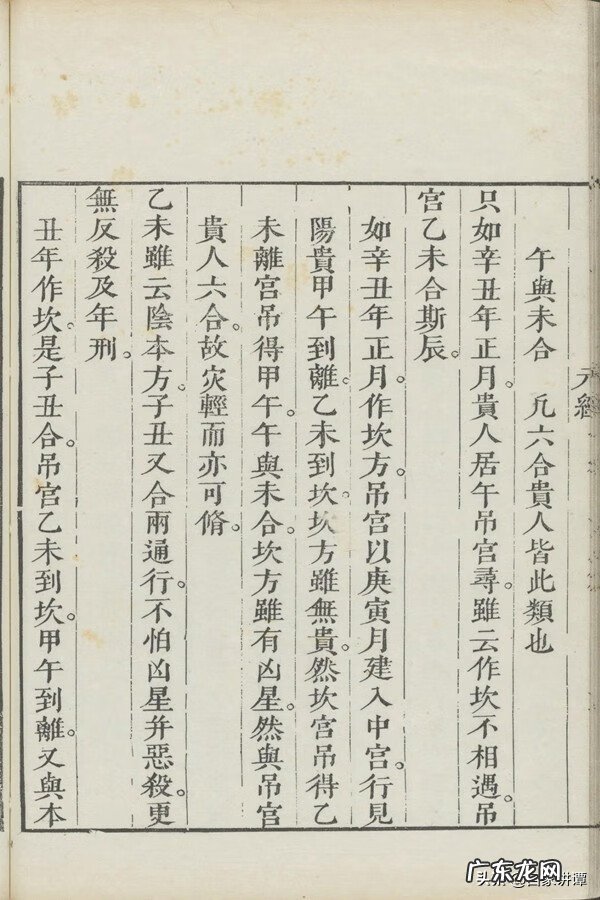 元經
午與未合　凡六合貴人皆此類也
只如辛丑年正月貴人居午吊宮尋。雖云作坎不相遇。吊
宮乙未合斯辰。
如辛丑年正月。作坎方。吊宮以庚寅月建入中宮。行見
陽貴甲午到離。乙未到坎。坎方雖無貴。然坎宮吊得乙
未離宮吊得甲午。午與未合。坎方雖有凶星。然與吊宮
貴人六合。故灾輕而亦可脩。
乙未雖云陰本方。子丑又合兩通行。不怕凶星并惡殺。更
無反殺及年刑。
丑年作坎。是子丑合。吊宮乙未到坎。甲午到離。又與本
广东龙网